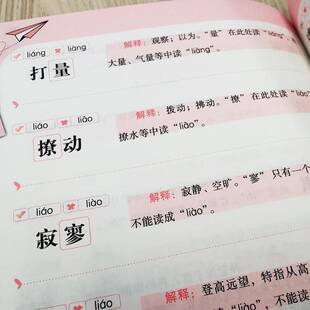 liáng liàng
解释：观察；以为。“量”在此处读“liáng”，
打量
大量、气量等中读“liàng”。
liáo liào
解释：拨动；拂动。“撩”在此处读“liáo”
撩动
撩水等中读“liāo”。
liáo liào
解释：寂静、空旷。“寥”只有一个
寂寥
不能读成“liào”。
liáo
解释：登高远望，特指从高
liáo